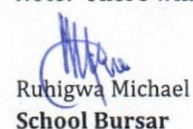 Ruhigwa Michael
School Bursar